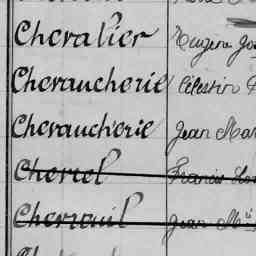 Chevalier
Cheraucherie Célestin
Cheraucherie Jean Mar
Chertel Francis
Cherruil Jean M